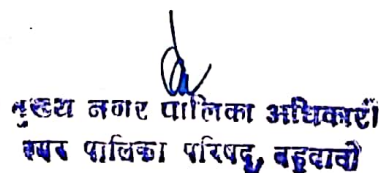 मुख्य नगर पालिका अधिकारी
नगर पालिका परिषद्,